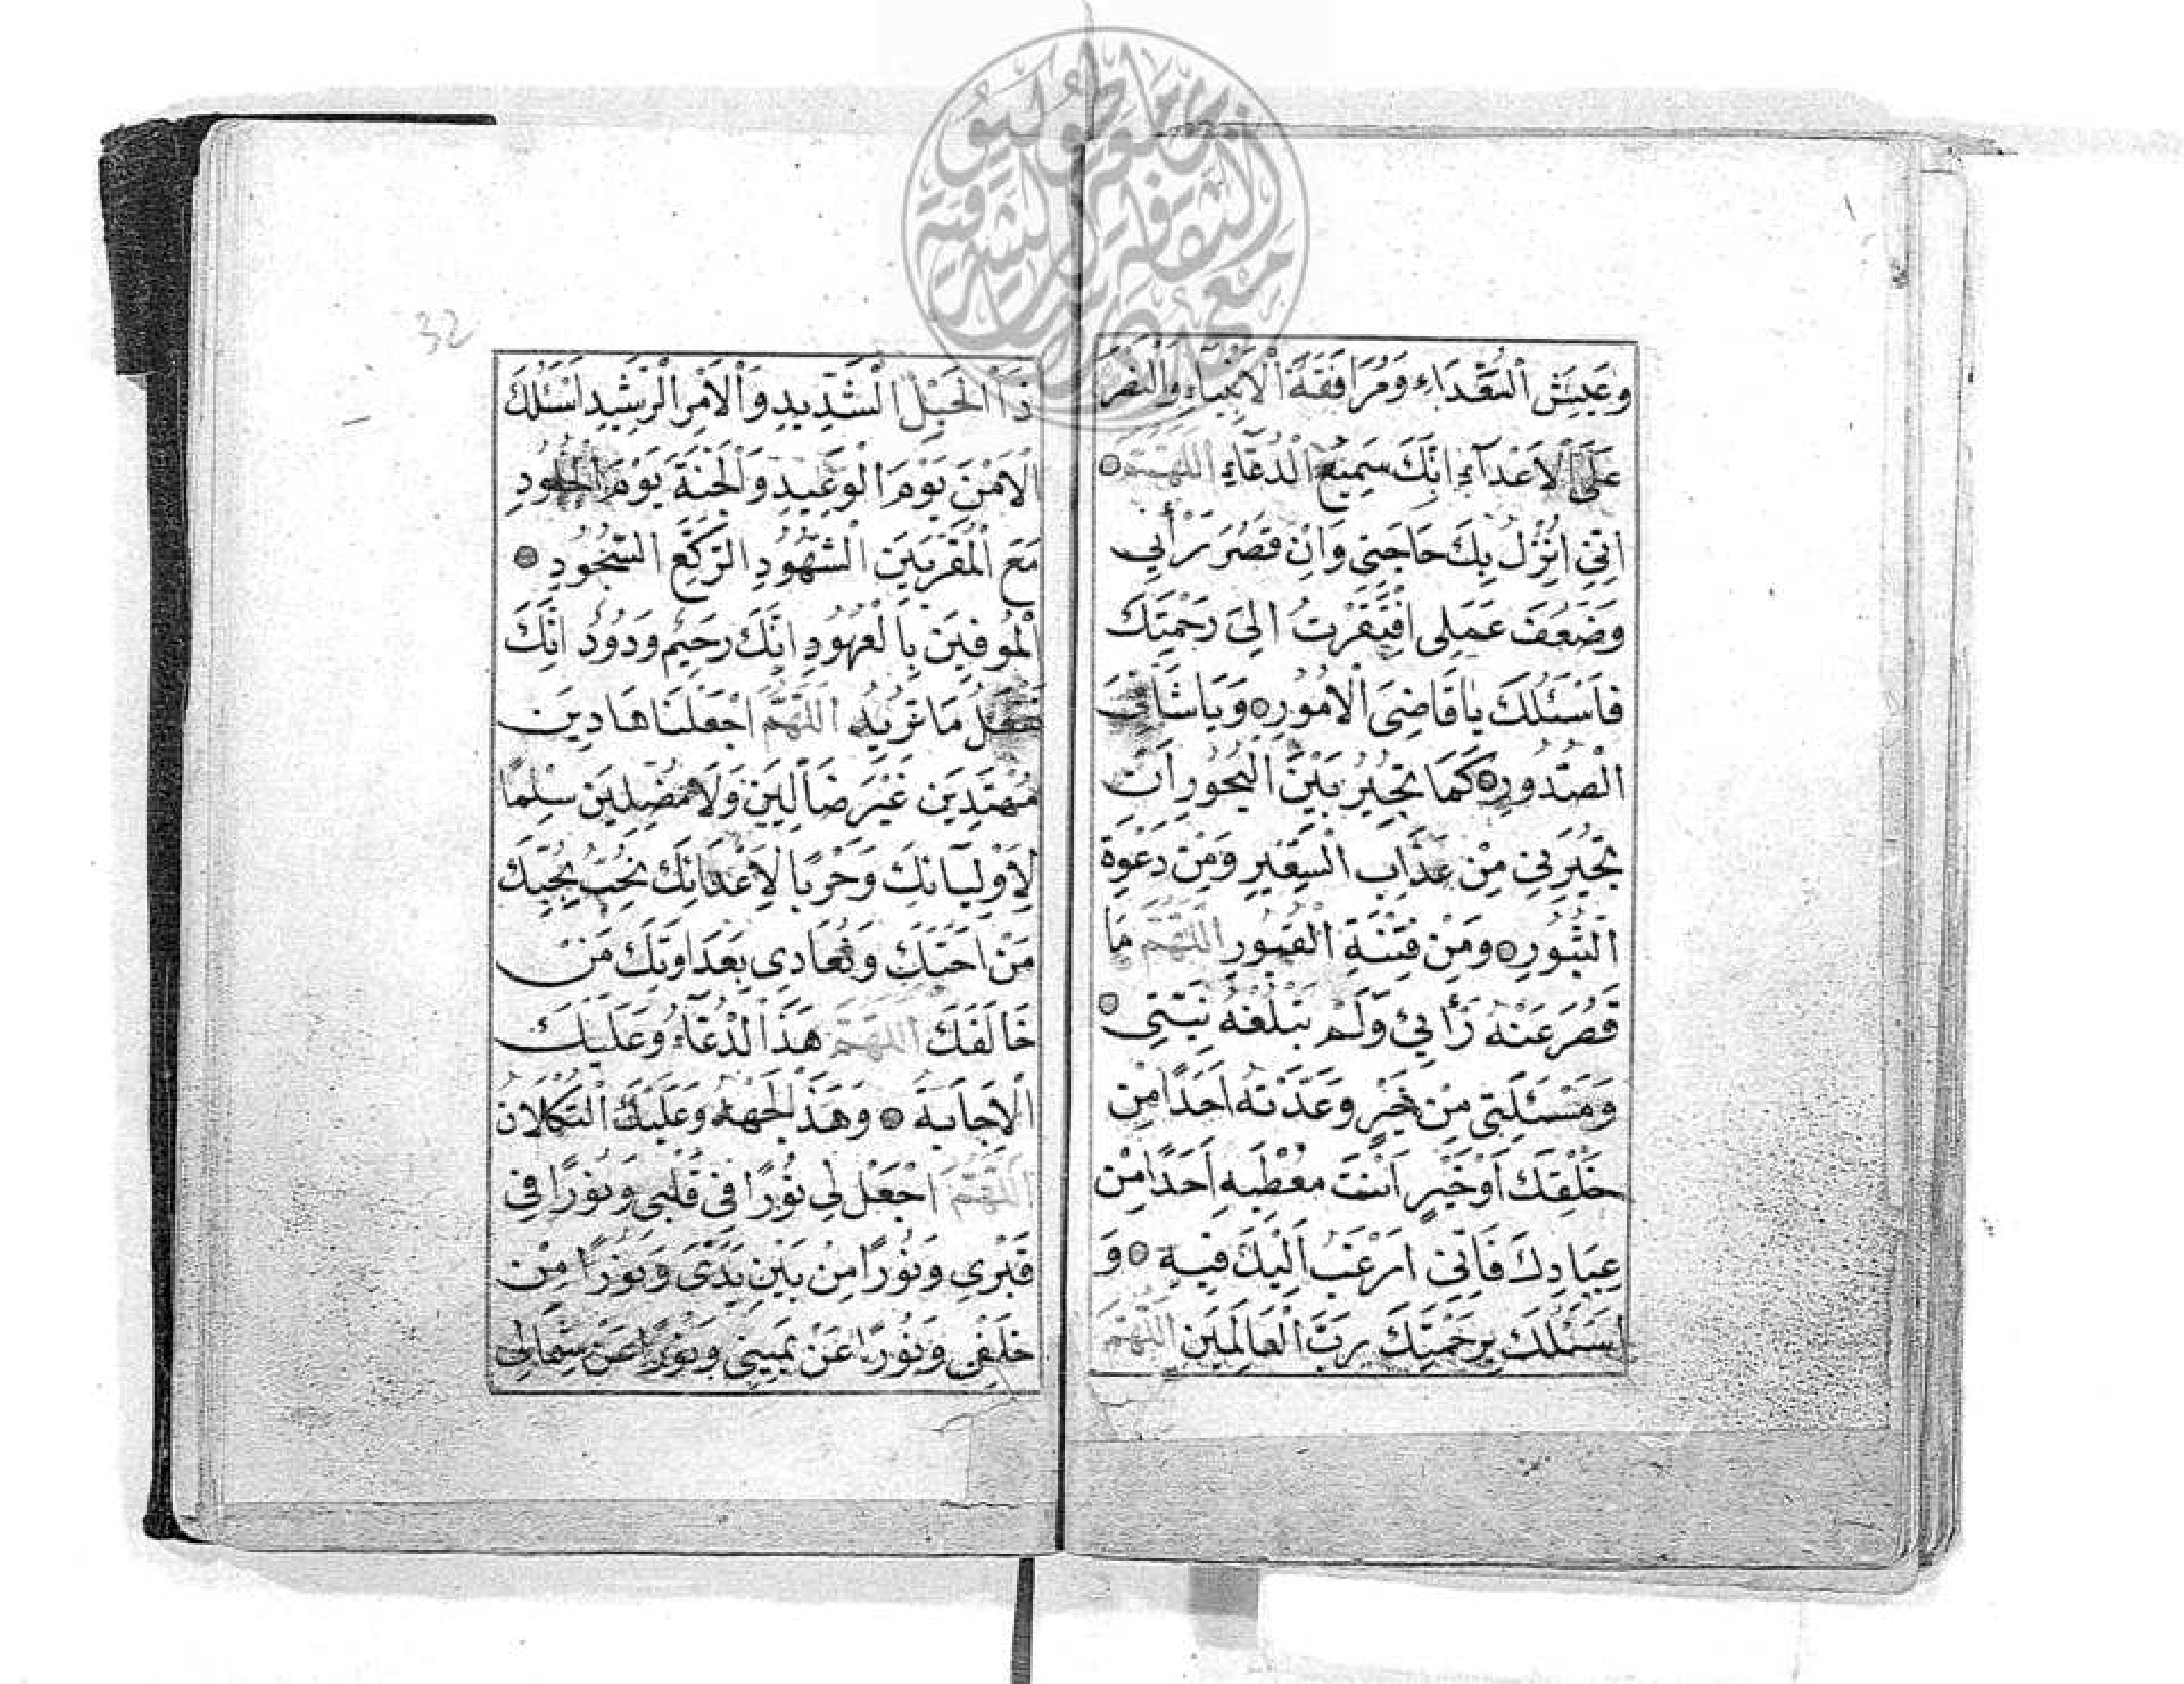 وَعَيْشَ السُّعَدَاءِ وَمُرَافَقَةَ الْأَنْبِيَاءِ وَالنَّصْرَ
عَلَى الْأَعْدَآءِ اِنَّكَ سَمِيعُ الدُّعَاءِ اللّٰهُمَّ
اِنِّي اُنْزِلُ بِكَ حَاجَتِي وَاِنْ قَصُرَ رَأْيِي
وَضَعُفَ عَمَلِي افْتَقَرْتُ اِلَى رَحْمَتِكَ
فَاَسْئَلُكَ يَا قَاضِيَ الْاُمُورِ وَيَا شَافِيَ
الصُّدُورِ كَمَا تُجِيرُ بَيْنَ الْبُحُورِ اَنْ
تُجِيرَنِي مِنْ عَذَابِ السَّعِيرِ وَمِنْ دَعْوَةِ
الثُّبُورِ وَمِنْ فِتْنَةِ الْقُبُورِ اللّٰهُمَّ مَا
قَصُرَ عَنْهُ رَأْيِي وَلَمْ تَبْلُغْهُ نِيَّتِي
وَمَسْئَلَتِي مِنْ خَيْرٍ وَعَدْتَهُ اَحَدًا مِنْ
خَلْقِكَ اَوْ خَيْرٍ اَنْتَ مُعْطِيهِ اَحَدًا مِنْ
عِبَادِكَ فَاِنِّي اَرْغَبُ اِلَيْكَ فِيهِ وَ
اَسْئَلُكَ بِرَحْمَتِكَ رَبَّ الْعَالَمِينَ اللّٰهُمَّ
32
ذَا الْحَبْلِ الشَّدِيدِ وَالْاَمْرِ الرَّشِيدِ اَسْئَلُكَ
الْاَمْنَ يَوْمَ الْوَعِيدِ وَالْجَنَّةَ يَوْمَ الْخُلُودِ
مَعَ الْمُقَرَّبِينَ الشُّهُودِ الرُّكَّعِ السُّجُودِ
الْمُوفِينَ بِالْعُهُودِ اِنَّكَ رَحِيمٌ وَدُودٌ اِنَّكَ
تَفْعَلُ مَا تُرِيدُ اَللّٰهُمَّ اجْعَلْنَا هَادِينَ
مُهْتَدِينَ غَيْرَ ضَالِّينَ وَلَا مُضِلِّينَ سِلْمًا
لِاَوْلِيَائِكَ وَحَرْبًا لِاَعْدَائِكَ نُحِبُّ بِحُبِّكَ
مَنْ اَحَبَّكَ وَنُعَادِي بِعَدَاوَتِكَ مَنْ
خَالَفَكَ اَللّٰهُمَّ هَذَا الدُّعَاءُ وَعَلَيْكَ
الْاِجَابَةَ وَهَذَا الْجَهْدُ وَعَلَيْكَ التُّكْلَانُ
اَللّٰهُمَّ اجْعَلْ لِي نُورًا فِي قَلْبِي وَنُورًا فِي
قَبْرِي وَنُورًا مِنْ بَيْنِ يَدَيَّ وَنُورًا مِنْ
خَلْفِي وَنُورًا عَنْ يَمِينِي وَنُورًا عَنْ شِمَالِي